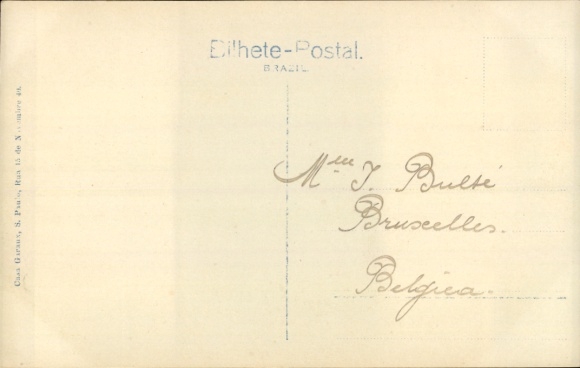 Bilhete-Postal.
BRAZIL
Casa Garaux, S. Paulo, Rua 15 de Novembro 40.
Mme J. Bulsé
Bruxelles.
Belgica.